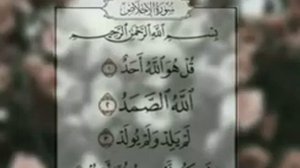 سُورَةُ الإِخْلَاصِ
بِسْمِ اللَّهِ الرَّحْمَٰنِ الرَّحِيمِ
قُلْ هُوَ اللَّهُ أَحَدٌ ١
اللَّهُ الصَّمَدُ ٢
لَمْ يَلِدْ وَلَمْ يُولَدْ ٣